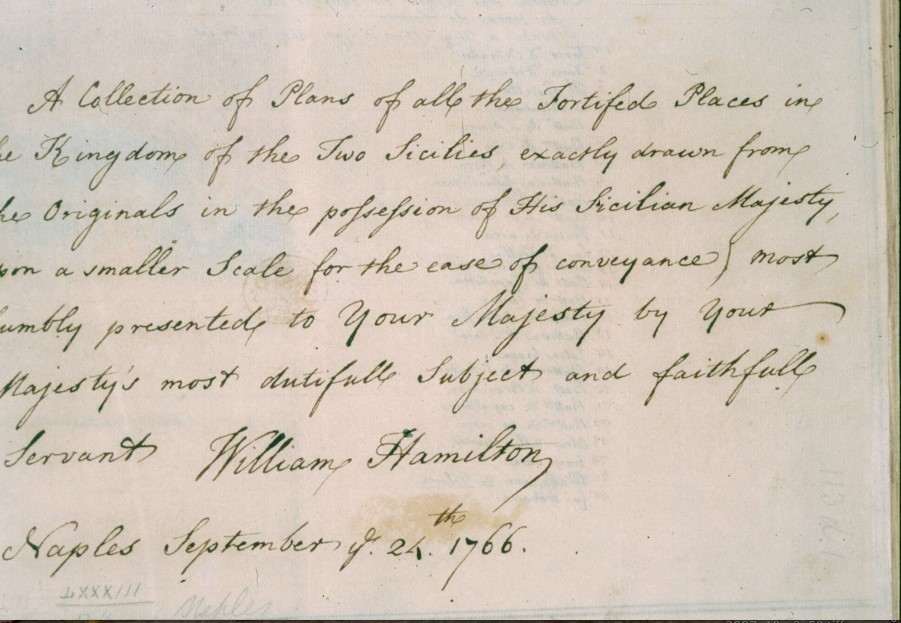 A Collection of Plans of all the Fortifed Places in
he Kingdom of the Two Sicilies, exactly drawn from
he Originals in the possession of His Sicilian Majesty,
on a smaller Scale for the ease of conveyance) most
umbly presented to Your Majesty by Your
Majesty's most dutifull Subject and faithfull
Servant William Hamilton
Naples September ye. 24.th 1766.
LXXXIII
Naples